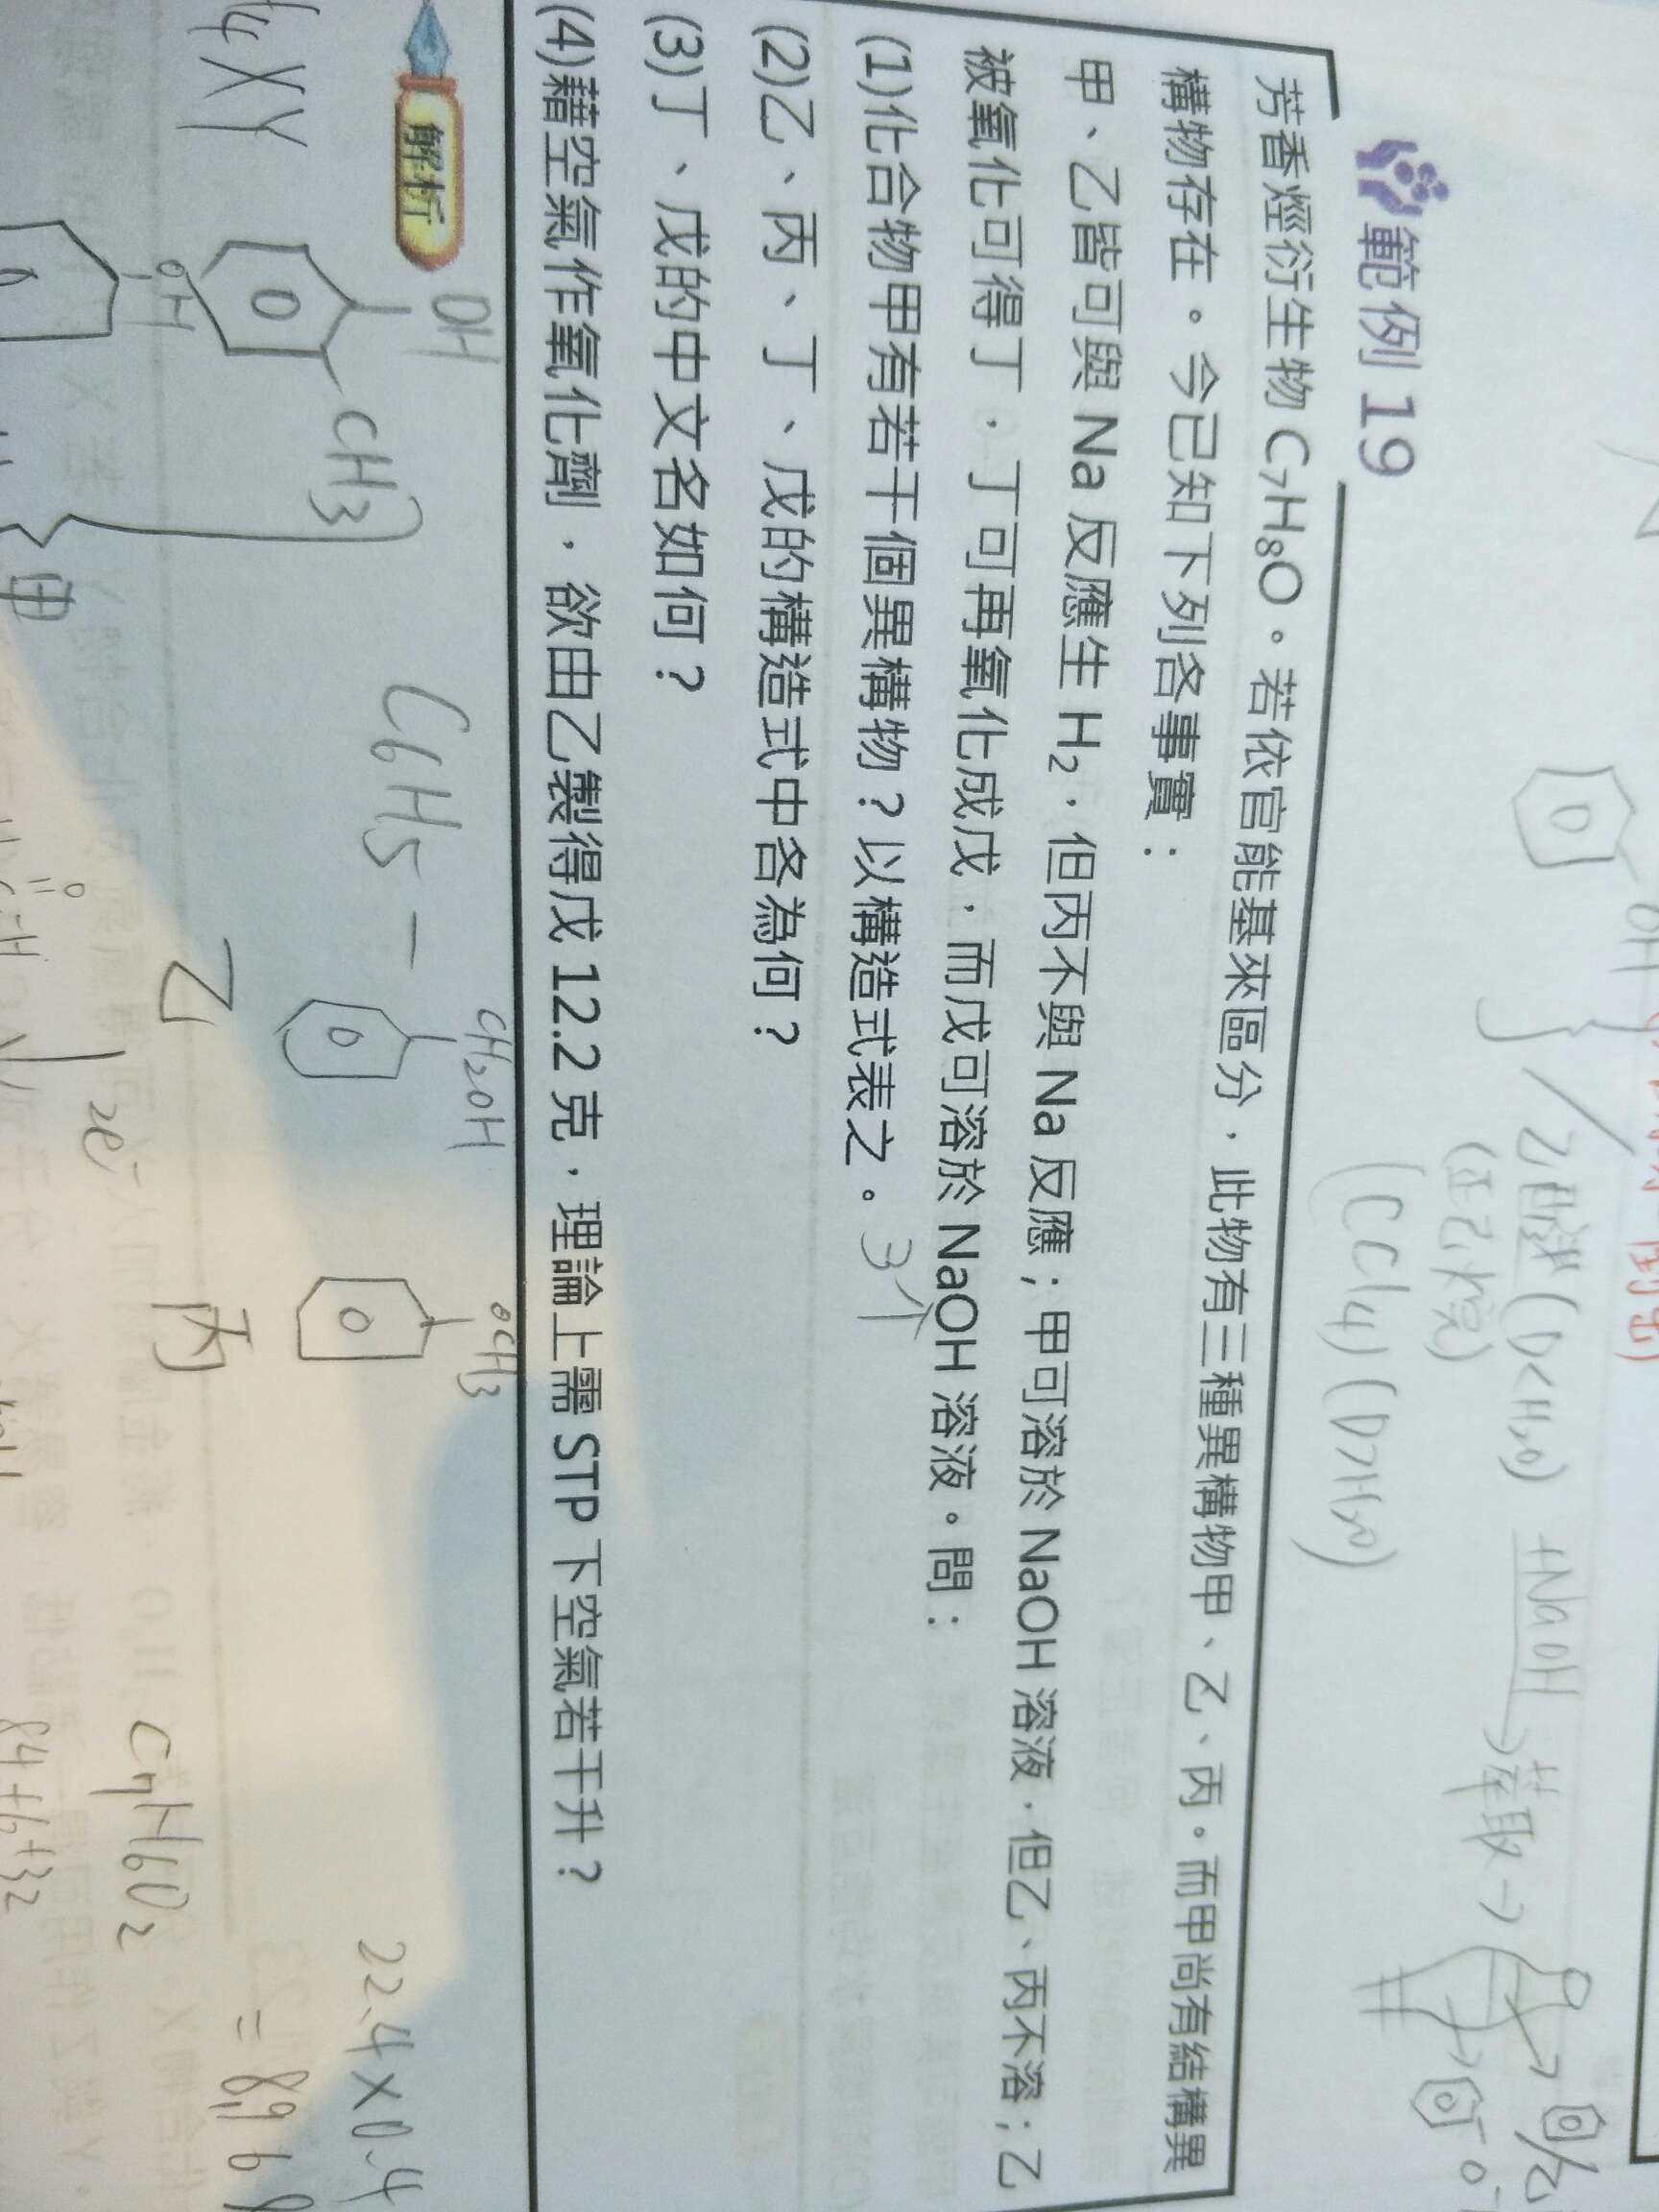 OH
乙醚(D<H₂O) +NaOH→萃取→
(正己烷)
(CCl4)(D>H₂O)
範例 19
芳香烴衍生物 C₇H₈O。若依官能基來區分，此物有三種異構物甲、乙、丙。而甲尚有結構異
構物存在。今已知下列各事實：
甲、乙皆可與 Na 反應生 H₂，但丙不與 Na 反應；甲可溶於 NaOH 溶液，但乙、丙不溶；乙
被氧化可得丁，丁可再氧化成戊，而戊可溶於 NaOH 溶液。問：
(1)化合物甲有若干個異構物？以構造式表之。3个
(2)乙、丙、丁、戊的構造式中各為何？
(3)丁、戊的中文名如何？
(4)藉空氣作氧化劑，欲由乙製得戊 12.2 克，理論上需 STP 下空氣若干升？
解析
OH
CH3
C6H5-
CH2OH
OCH3
22.4×0.4
=8.96
XY
OH
乙
丙
C7H6O2
甲
2e⁻
84+6+32